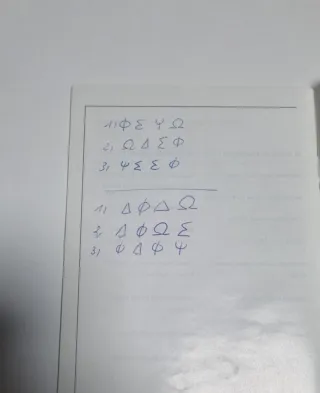 1) Φ Σ Ψ Ω
2) Ω Δ Σ Φ
3) Ψ Σ Σ Φ
1) Δ Φ Δ Ω
2) Δ Φ Ω Σ
3) Φ Δ Φ Ψ